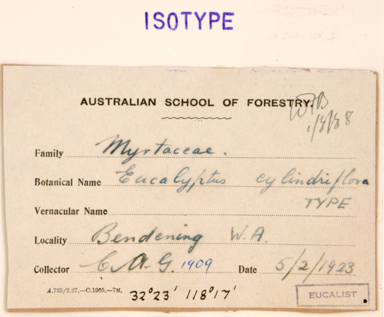 ISOTYPE
AUSTRALIAN SCHOOL OF FORESTRY.
1/8/38
Family Myrtaceae.
Botanical Name Eucalyptus cylindriflora
Vernacular Name TYPE
Locality Bendening W.A.
Collector C.A.G. 1909 Date 5/2/1923
32°23' 118°17'
EUCALIST